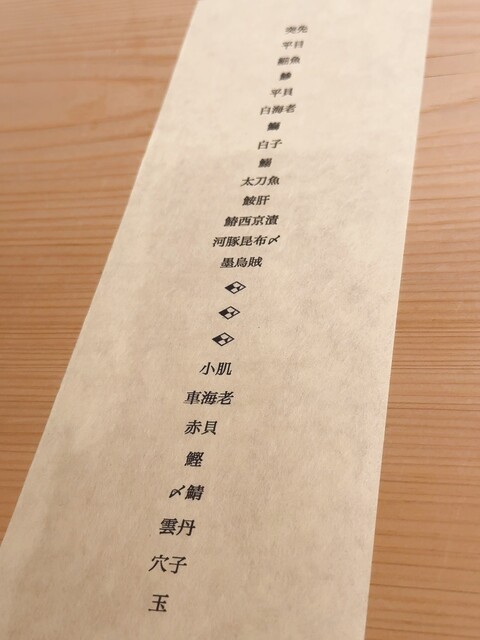 突先
平目
鰹魚
鯵
平貝
白海老
鰤
白子
鰯
太刀魚
鮟肝
鰆西京漬
河豚昆布〆
墨烏賊
小肌
車海老
赤貝
鰹
〆鯖
雲丹
穴子
玉